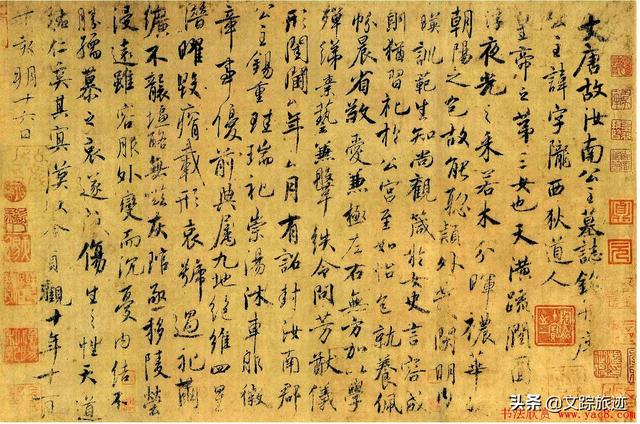 大唐故汝南公主墓誌銘并序
公主諱字隴西狄道人
皇帝之第三女也天潢疏潤圓
浮夜光之采若木分暉穠華
朝陽之色故能聰穎外發閑明內
暎訓範生知尚觀箴於女史言容成
則猶習礼於公宮至如怡色就養佩
帉晨省敬愛兼極左右無方加以學
殫綈素藝兼鞶紩令問芳猷儀
形閨閫公年公月有詔封汝南郡
公主錫重珪瑞礼崇湯沐車服徽
章事優前典属九地絕維四星
潛曜毀瘠載形哀號過礼繭
纊不襲塩酪無嗞灰琯亟移陵塋
浸遠雖容服外變而沉憂内結不
勝孺慕之哀遂成傷生之性天道
祐仁奚其冥漠以今貞觀十年十一月
丁亥朔十六日
头条 @文踪旅迹
书法欣赏 www.yac8.com